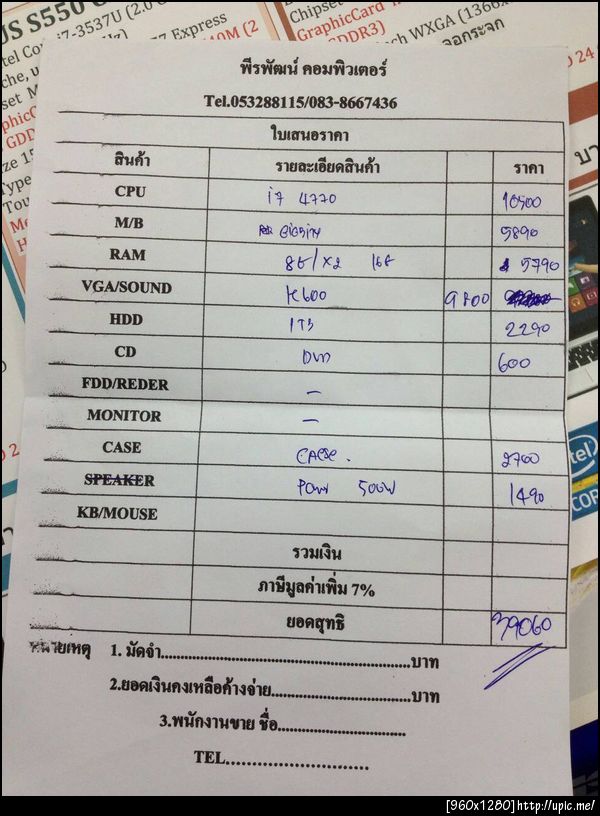 US S550
Intel Co
i7-3537U (2.0
Express
Chipset
GraphicCard
DDR3)
WXGA (1366x
จอกระจก
พีรพัฒน์ คอมพิวเตอร์
Tel.053288115/083-8667436
ใบเสนอราคา
สินค้า รายละเอียดสินค้า ราคา
CPU i7 4770 10500
M/B 5890
RAM 8G/X2 16G 5790
VGA/SOUND K600 9800
HDD 1TB 2290
CD DVD 600
FDD/REDER –
MONITOR –
CASE CASE. 2700
SPEAKER POWER 500W 1490
KB/MOUSE
รวมเงิน
ภาษีมูลค่าเพิ่ม 7%
ยอดสุทธิ 39060
หมายเหตุ 1. มัดจำ...........................................................บาท
2.ยอดเงินคงเหลือค้างจ่าย........................................บาท
3.พนักงานขาย ชื่อ...............................
TEL..........................
intel
COR
[960x1280]http://upic.me/